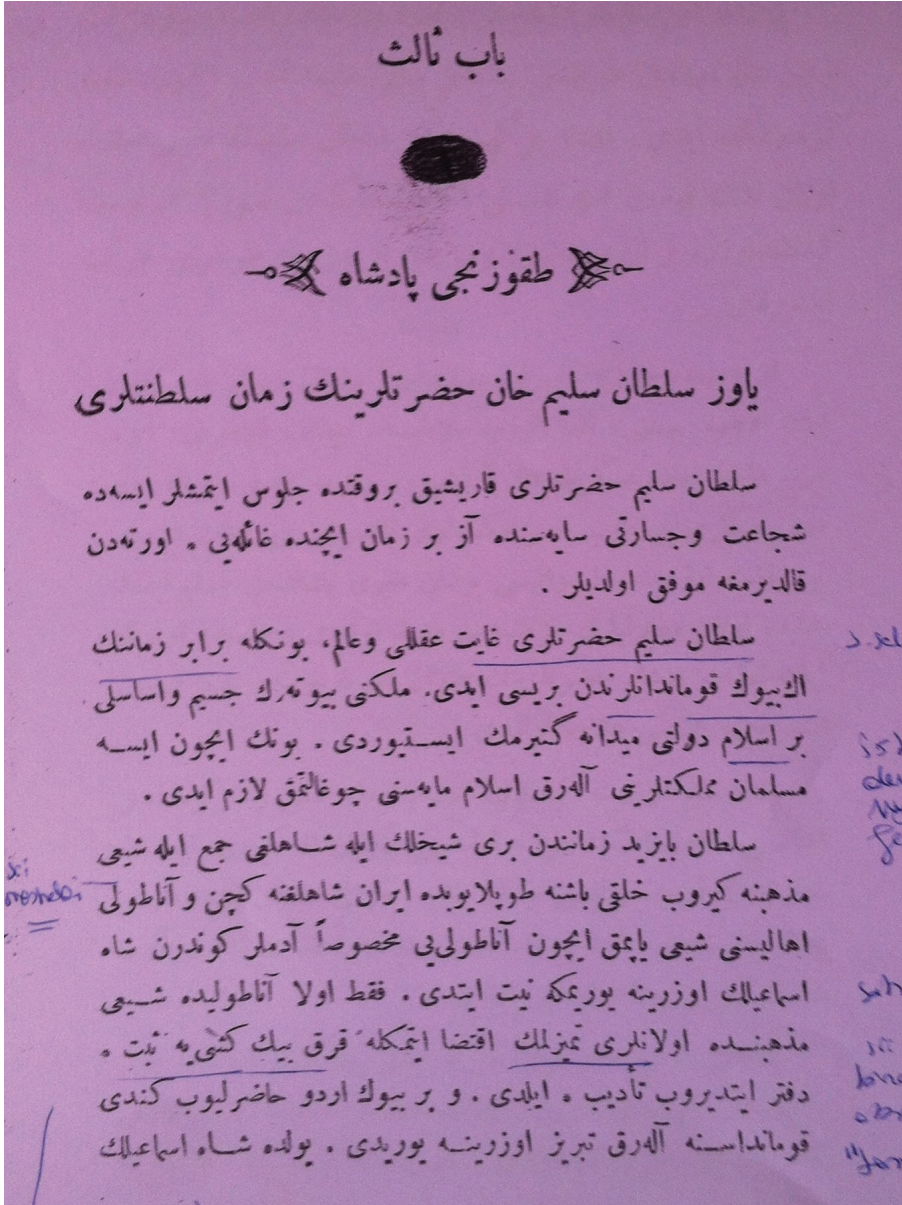 باب ثالث
طقوزنجی پادشاه
یاوز سلطان سلیم خان حضرتلرینك زمان سلطنتلری
سلطان سلیم حضرتلری قاریشیق بروقتده جلوس ایتمشلر ایسه‌ده
شجاعت وجسارتی سایه‌سنده آز بر زمان ایچنده غائله‌یی . اورته‌دن
قالدیرمغه موفق اولدیلر .
سلطان سلیم حضرتلری غایت عقللی وعالم، بونكله برابر زماننك
اك بیوك قوماندانلرندن بریسی ایدی. ملكنی بیوته‌رك جسیم واساسلی
بر اسلام دولتی میدانه گتیرمك ایستیوردی . بونك ایچون ایسه
مسلمان مملكتلرینی آله‌رق اسلام مایه‌سنی چوغالتمق لازم ایدی .
سلطان بایزید زمانندن بری شیخلك ایله شاهلغی جمع ایله شیعی
مذهبنه كیروب خلقی باشنه طوپلایوبده ایران شاهلغنه كچن و آناطولی
اهالیسنی شیعی یاپمق ایچون آناطولی‌یی مخصوصاً آدملر كوندرن شاه
اسماعیلك اوزرینه یوریمكه نیت ایتدی . فقط اولا آناطولیده شیعی
مذهبنده اولانلری تمیزلمك اقتضا ایتمكله قرق بیك كشی‌یه ثبت .
دفتر ایتدیروب تأدیب . ایلدی . و بر بیوك اردو حاضرلیوب كندی
قومانداسنه آله‌رق تبریز اوزرینه یوریدی . یولده شاه اسماعیلك